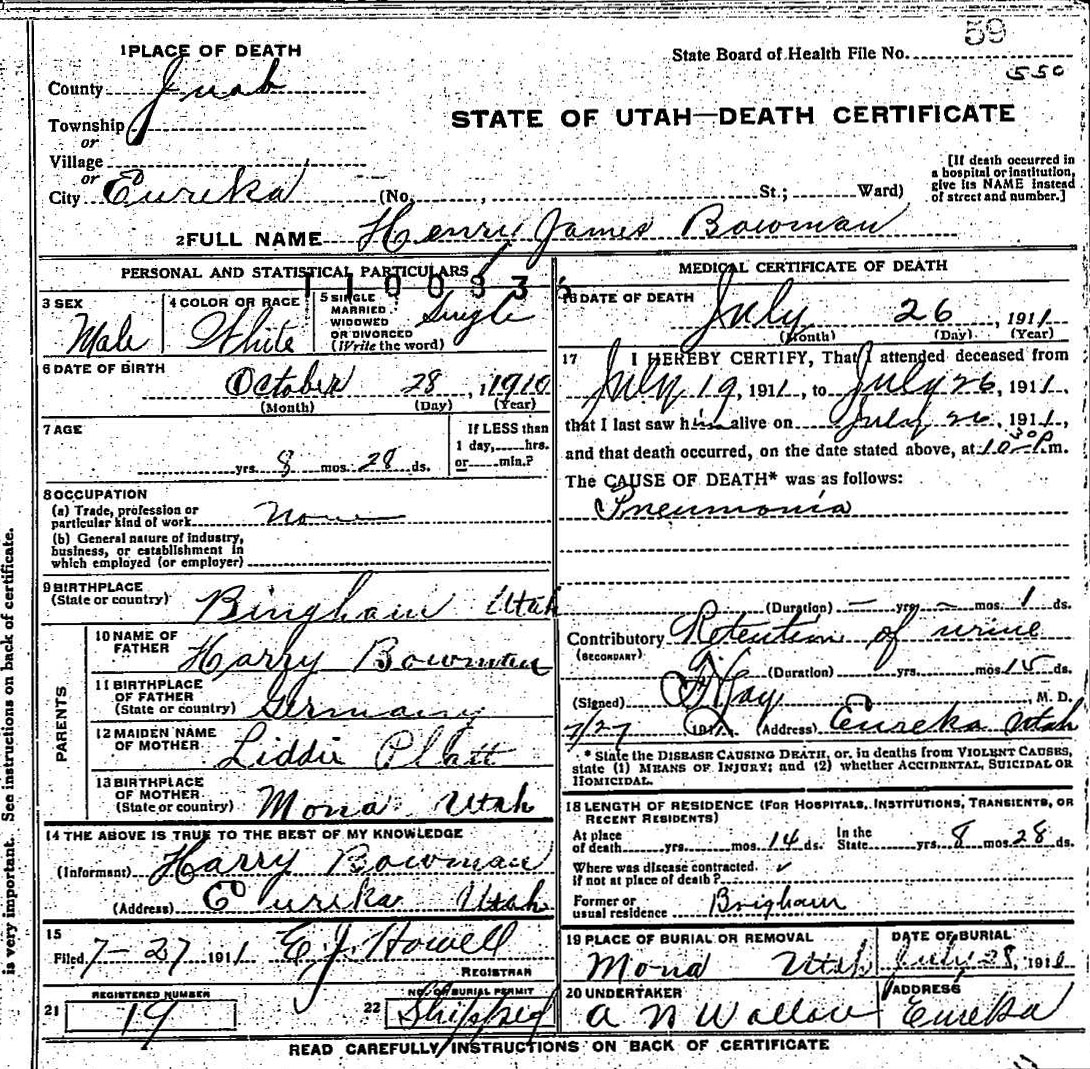 59
State Board of Health File No.
550
1 PLACE OF DEATH
County Juab
Township
or
Village
or
City Eureka (No. , St.; Ward)
STATE OF UTAH—DEATH CERTIFICATE
[If death occurred in
a hospital or institution,
give its NAME instead
of street and number.]
2 FULL NAME Henry James Bowman
PERSONAL AND STATISTICAL PARTICULARS
3 SEX
Male
4 COLOR OR RACE
White
5 SINGLE
MARRIED
WIDOWED
OR DIVORCED
(Write the word)
Single
6 DATE OF BIRTH
October 28, 1910
(Month) (Day) (Year)
7 AGE
yrs. 8 mos. 28 ds.
If LESS than
1 day, hrs.
or min.?
8 OCCUPATION
(a) Trade, profession or
particular kind of work None
(b) General nature of industry,
business, or establishment in
which employed (or employer)
9 BIRTHPLACE
(State or country) Bingham Utah
PARENTS
10 NAME OF
FATHER Harry Bowman
11 BIRTHPLACE
OF FATHER
(State or country) Germany
12 MAIDEN NAME
OF MOTHER Liddie Platt
13 BIRTHPLACE
OF MOTHER
(State or country) Mona Utah
14 THE ABOVE IS TRUE TO THE BEST OF MY KNOWLEDGE
(Informant) Harry Bowman
(Address) Eureka Utah
15
Filed 7-27 1911 E. J. Howell
REGISTRAR
21 REGISTERED NUMBER
19
22 NO. OF BURIAL PERMIT
Shipped
MEDICAL CERTIFICATE OF DEATH
16 DATE OF DEATH
July 26, 1911
(Month) (Day) (Year)
17 I HEREBY CERTIFY, That I attended deceased from
July 19, 1911, to July 26, 1911,
that I last saw him alive on July 26, 1911,
and that death occurred, on the date stated above, at 10 30 P.m.
The CAUSE OF DEATH* was as follows:
Pneumonia
(Duration) — yrs. — mos. 1 ds.
Contributory Retention of urine
(SECONDARY)
(Duration) yrs. mos. 15 ds.
(Signed) Hay M. D.
7/27 191 (Address) Eureka Utah
* State the DISEASE CAUSING DEATH, or, in deaths from VIOLENT CAUSES,
state (1) MEANS OF INJURY; and (2) whether ACCIDENTAL, SUICIDAL OR
HOMICIDAL.
18 LENGTH OF RESIDENCE (FOR HOSPITALS, INSTITUTIONS, TRANSIENTS, OR
RECENT RESIDENTS)
At place
of death yrs. mos. 14 ds.
In the
State yrs. 8 mos. 28 ds.
Where was disease contracted.
if not at place of death?
Former or
usual residence Bingham
19 PLACE OF BURIAL OR REMOVAL
Mona Utah
DATE OF BURIAL
July 28, 1911
20 UNDERTAKER
A N Wallace
ADDRESS
Eureka
READ CAREFULLY INSTRUCTIONS ON BACK OF CERTIFICATE
is very important. See instructions on back of certificate.